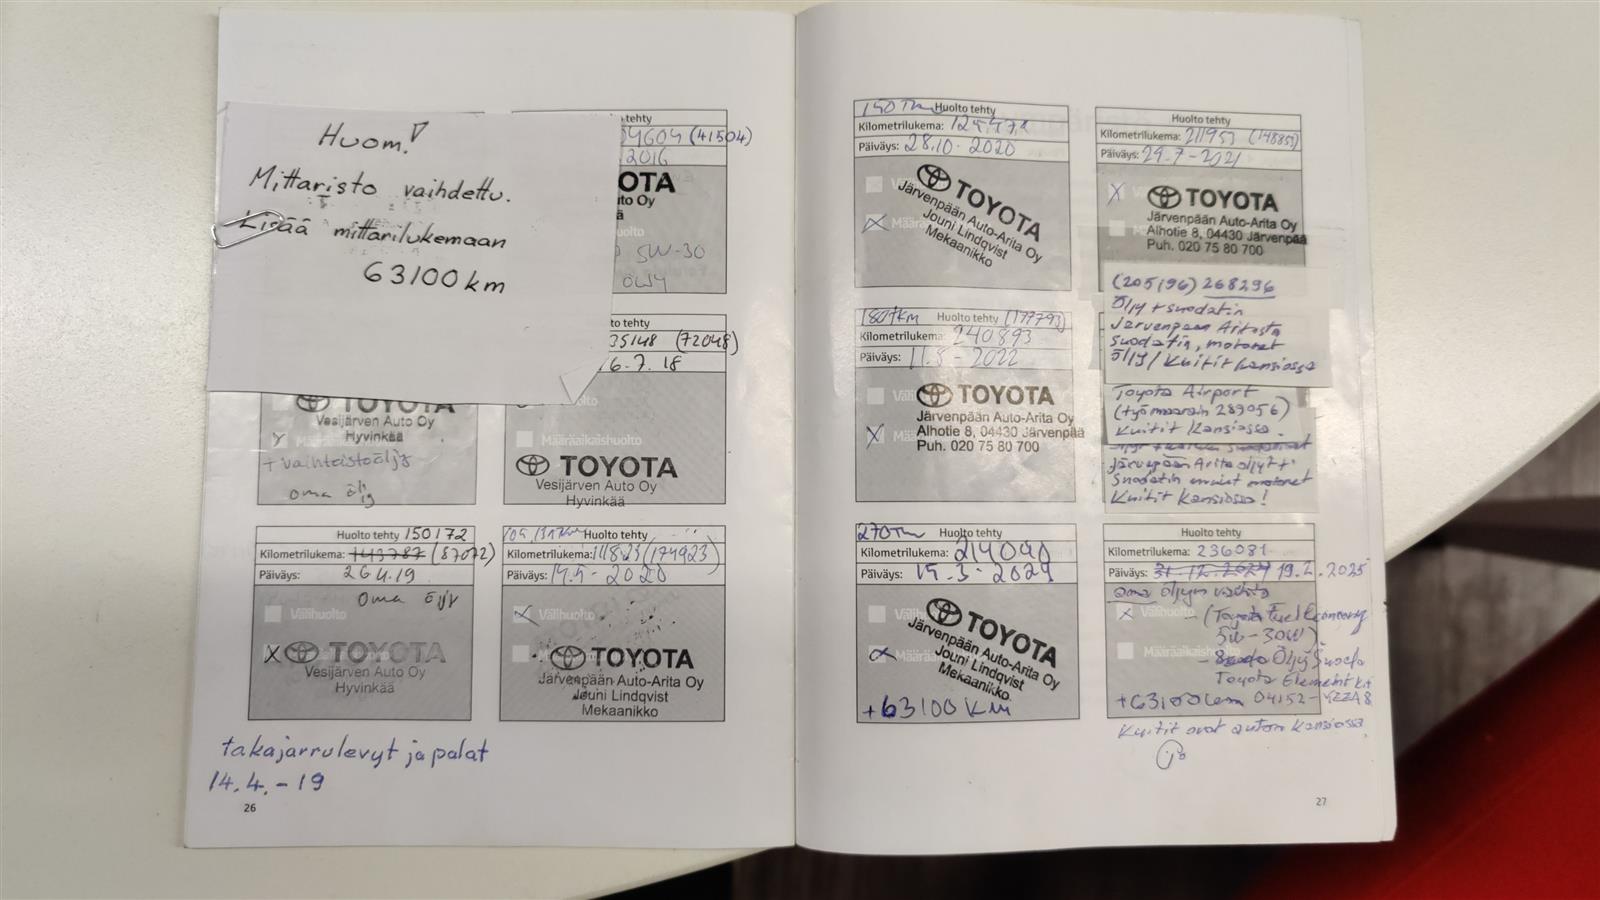 Huom!
Mittaristo vaihdettu.
Lisää mittarilukemaan
63100 km
04604 (41504)
.2016
OTA
to Oy
5W-30
to tehty
35148 (72048)
6.7.18
TOYOTA
Vesijärven Auto Oy
Hyvinkää
+ vaihteistoöljy
oma öljy
Määräaikaishuolto
TOYOTA
Vesijärven Auto Oy
Hyvinkää
Huolto tehty 150172
Kilometrilukema: 143787 (87072)
Päiväys: 26 4.19
oma öljy
Välihuolto
X TOYOTA
Vesijärven Auto Oy
Hyvinkää
Huolto tehty
Kilometrilukema: 11823 (174923)
Päiväys: 14.5 - 2020
Välihuolto
TOYOTA
Järvenpään Auto-Arita Oy
Jouni Lindqvist
Mekaanikko
takajarrulevyt ja palat
14.4.-19
26
150 Tkm Huolto tehty
Kilometrilukema:
Päiväys: 28.10. 2020
TOYOTA
Järvenpään Auto-Arita Oy
Jouni Lindqvist
Mekaanikko
Huolto tehty
Kilometrilukema: 211953 (148853)
Päiväys: 29.7-2021
X TOYOTA
Järvenpään Auto-Arita Oy
Alhotie 8, 04430 Järvenpää
Puh. 020 75 80 700
180tkm Huolto tehty (177793)
Kilometrilukema: 240893
Päiväys: 11.8 - 2022
TOYOTA
Järvenpään Auto-Arita Oy
X Alhotie 8, 04430 Järvenpää
Puh. 020 75 80 700
(205196) 268296
Öljy + suodatin
Järvenpään Aritasta
suodatin, motonet
öljy / Kuitit kansiossa
Toyota Airport
(työmäärain 289056)
Kuitit Kansiossa.
Järvepään Arita öljyt +
suodatin muut motonet
Kuitit Kansiossa!
270Tkm Huolto tehty
Kilometrilukema: 214090
Päiväys: 14.3. 2024
TOYOTA
Järvenpään Auto-Arita Oy
Jouni Lindqvist
Mekaanikko
+63100 KM
Huolto tehty
Kilometrilukema: 236081
Päiväys: 31.12.2024 19.2.2025
oma öljyn vaihto
X Välihuolto - (Toyota Fuel Economy
5W-30W)
Määräaikaishuolto - Öljy Suoda
Toyota Element Kit
+63100km 04152-YZZA8
Kuitit ovat auton kansiossa.
27